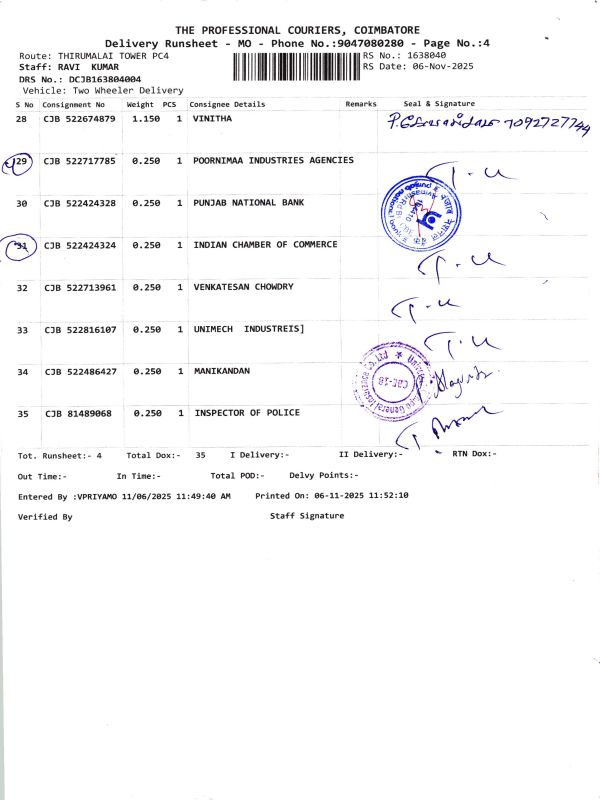 THE PROFESSIONAL COURIERS, COIMBATORE
Delivery Runsheet - MO - Phone No.:9047080280 - Page No.:4
Route: THIRUMALAI TOWER PC4 RS No.: 1638040
Staff: RAVI KUMAR RS Date: 06-Nov-2025
DRS No.: DCJB163804004
Vehicle: Two Wheeler Delivery
S No Consignment No Weight PCS Consignee Details Remarks Seal & Signature
28 CJB 522674879 1.150 1 VINITHA 7092727744
29 CJB 522717785 0.250 1 POORNIMAA INDUSTRIES AGENCIES
30 CJB 522424328 0.250 1 PUNJAB NATIONAL BANK
31 CJB 522424324 0.250 1 INDIAN CHAMBER OF COMMERCE
32 CJB 522713961 0.250 1 VENKATESAN CHOWDRY
33 CJB 522816107 0.250 1 UNIMECH INDUSTREIS]
34 CJB 522486427 0.250 1 MANIKANDAN
35 CJB 81489068 0.250 1 INSPECTOR OF POLICE
Tot. Runsheet:- 4 Total Dox:- 35 I Delivery:- II Delivery:- RTN Dox:-
Out Time:- In Time:- Total POD:- Delvy Points:-
Entered By :VPRIYAMO 11/06/2025 11:49:40 AM Printed On: 06-11-2025 11:52:10
Verified By Staff Signature